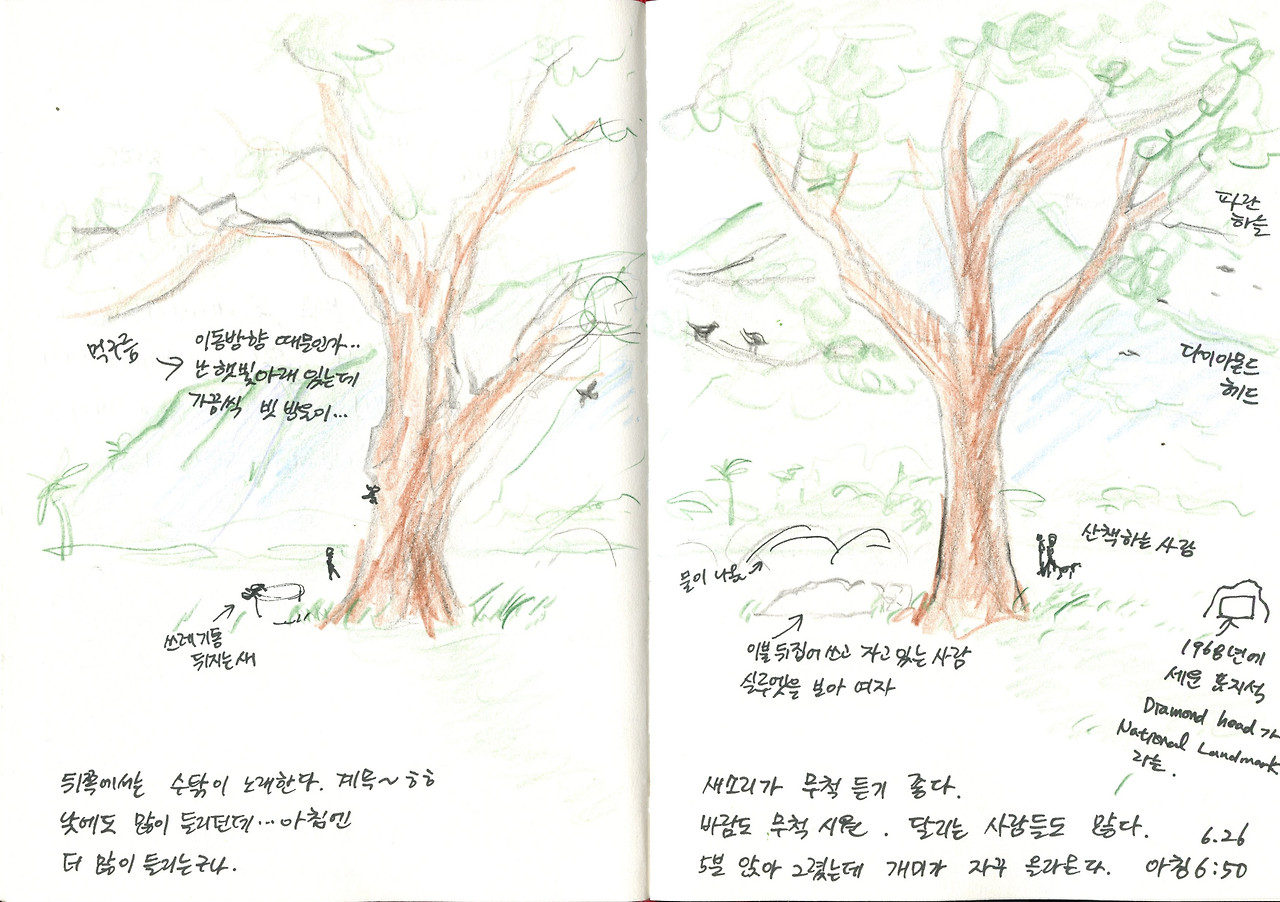 먹구름
이동방향 때문인가...
난 햇빛아래 있는데
가끔씩 빗방울이...
쓰레기통
뒤지는 새
뒤쪽에서는 수탉이 노래한다. 계목~ㅎㅎ
낮에도 많이 들리던데...아침엔
더 많이 들리는구나.
파란
하늘
다이아몬드
헤드
산책하는 사람
물이 나옴
이불 뒤집어 쓰고 자고 있는 사람
실루엣을 보아 여자
1968년에
세운 표지석
Diamond head가
National Landmark
라는.
새소리가 무척 듣기 좋다.
바람도 무척 시원. 달리는 사람들도 많다.
5분 앉아 그렸는데 개미가 자꾸 올라온다.
6.26
아침 6:50